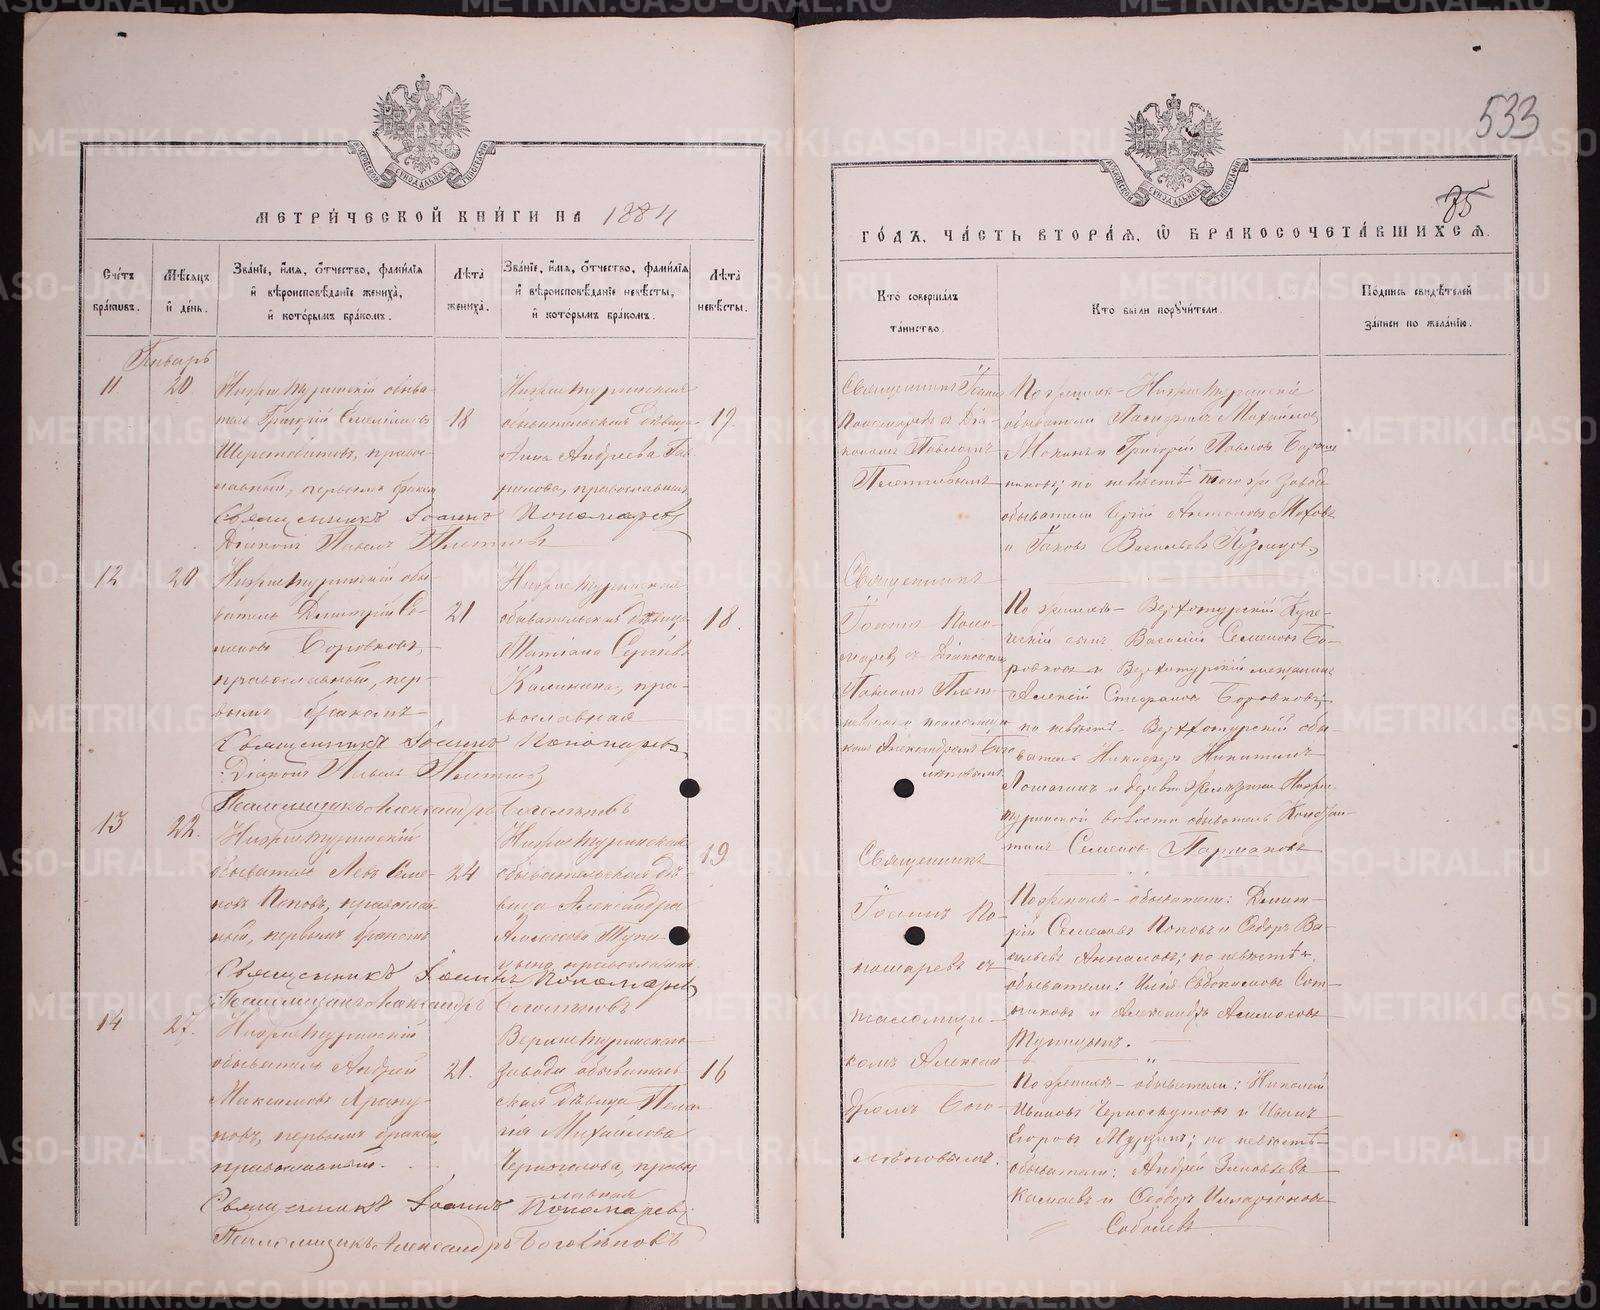 МЕТРИ́ЧЕСКОЙ КНИ́ГИ НА 1884
Сче́тъ бра́ковъ.
Мѣ́сяцъ и҆ де́нь.
Зва́нїе, и҆́мѧ, ѻ҆́тчество, фами́лїѧ и҆ вѣроисповѣ́данїе жениха̀, и҆ кото́рымъ бра́комъ.
Лѣ́та жениха̀.
Зва́нїе, и҆́мѧ, ѻ҆́тчество, фами́лїѧ и҆ вѣроисповѣ́данїе невѣ́сты, и҆ кото́рымъ бра́комъ.
Лѣ́та невѣ́сты.
Январь
11
20
Нижнетуринскій обыва-
тель Григорій
православный, первымъ бракомъ
18
Нижнетуринская
обывательская дѣвица
Анна Андреева Гав-
рилова, православная
17
Священникъ Іоаннъ Пономаревъ
Діаконъ Павелъ
12
20
Нижнетуринскій обы-
ватель Димитрій Се-
меновъ Боровковъ,
православный, пер-
вымъ бракомъ
21
Нижнетуринская
обывательская дѣвица
Татіана Сергѣева
Калинина, пра-
вославная
18.
Священникъ Іоаннъ Пономаревъ
Діаконъ Павелъ
Псаломщикъ Александръ Боголѣповъ
13
22.
Нижнетуринскій
обыватель Левъ Семе-
новъ Поповъ, православ-
ный, первымъ бракомъ
24
Нижнетуринская
обывательская дѣ-
вица Александра
Тупи-
цына, православная
19
Священникъ Іоаннъ Пономаревъ
Псаломщикъ Александръ Боголѣповъ
14
27.
Нижнетуринскій
обыватель Андрей
Максимовъ
первымъ бракомъ,
православный.
21.
Верхнетуринскаго
завода обыватель-
ская дѣвица Пела-
гія Михайлова
Черноголова, правос
лавная
16
Священникъ Іоаннъ Пономаревъ
Псаломщикъ Александръ Боголѣповъ
533
85
ГО́ДЪ, ЧА́СТЬ ВТОРА́Ѧ, Ѡ҆ БРАКОСОЧЕТА́ВШИХСѦ.
Кто̀ соверша́лъ та́инство.
Кто̀ бы́ли порꙋчи́тели.
По́дпись свидѣ́телей за́писи по жела́нїю.
Священникъ Іоаннъ
Пономаревъ съ Діа-
кономъ Павломъ
По женихѣ - Нижнетуринскіе
обыватели Михайловъ
Мокинъ и Григорій Павловъ
по невѣстѣ того же завода
обыватели
и Іаковъ Васильевъ Кузнецовъ
Священникъ
Іоаннъ Поно-
маревъ съ Діакономъ
Павломъ
и псаломщи-
комъ Александромъ Бого
лѣповымъ
По женихѣ - Верхотурскій купе-
ческій сынъ Василій Семеновъ Бо-
ровковъ и Верхотурскій мещанинъ
Алексій Стефановъ Боровковъ,
по невѣстѣ - Верхотурскій обы-
ватель Никифоръ Никитинъ
и деревни Нижне-
туринской волости обыватель Констан-
тинъ Семеновъ
Священникъ
Іоаннъ По-
номаревъ съ
псаломщи-
комъ Алексан
дромъ Бого-
лѣповымъ.
По женихѣ - обыватели: Димит-
рій Семеновъ Поповъ и Ѳедоръ Ва-
сильевъ по невѣстѣ
обыватели: Илія Евдокимовъ Сот-
никовъ и Александръ
Тупицынъ.
По женихѣ - обыватели: Николай
Ивановъ Черноскутовъ и Иванъ
Егоровъ Мурзинъ; по невѣстѣ
обыватели: Андрей Зиновьевъ
и Ѳеодоръ Илларіоновъ
Соболевъ
METRIKI.GASO-URAL.RU